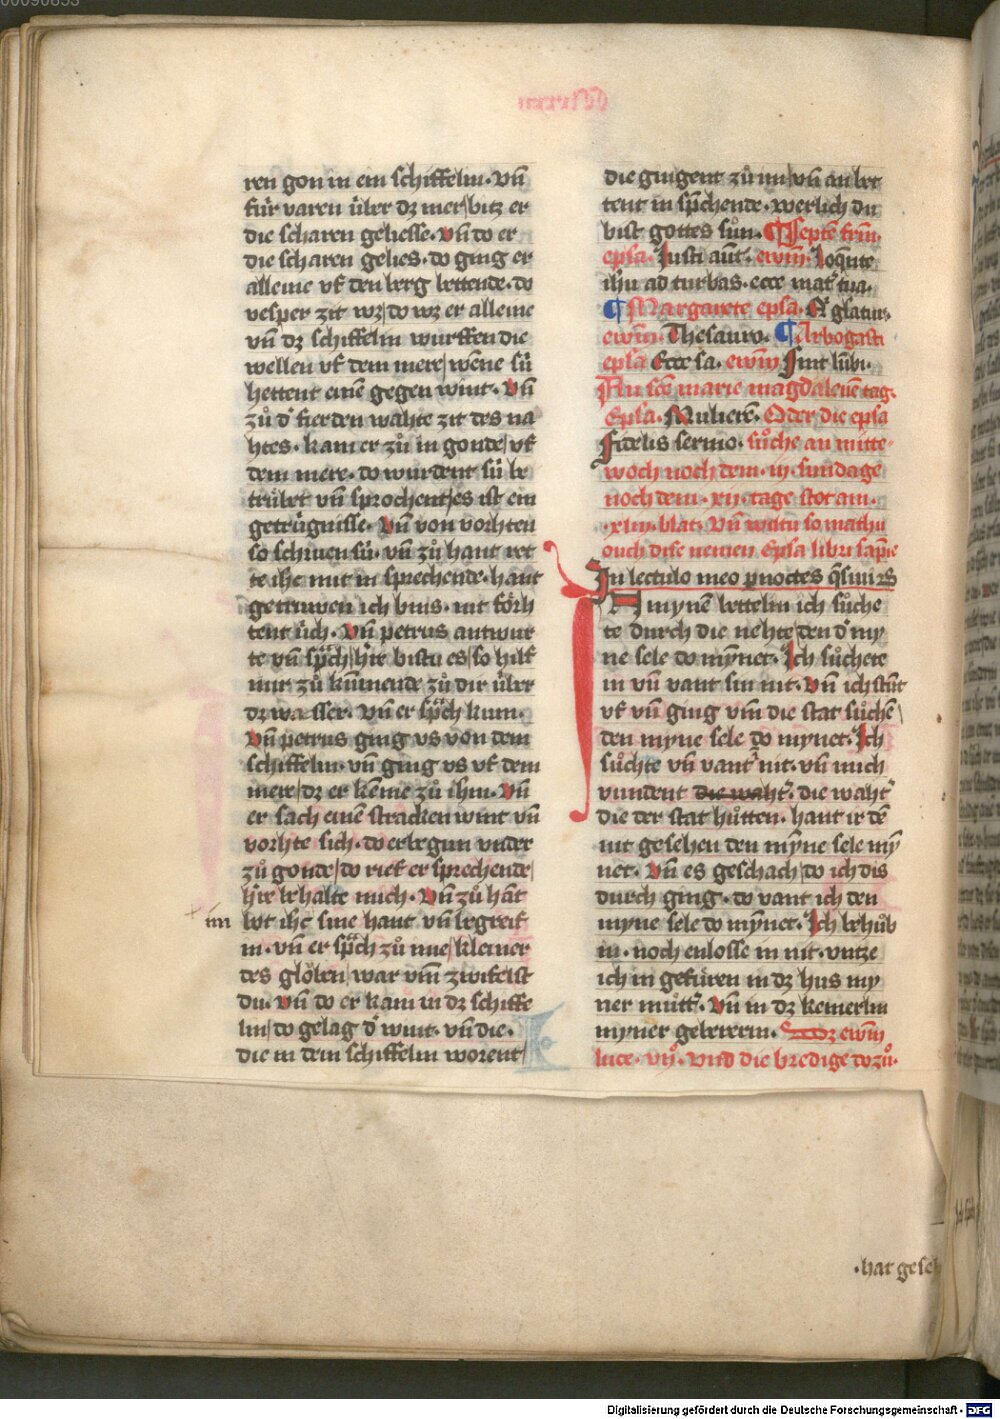 ren gon in ein schiffelin. vn̄
für varen über dz mer bitz er
die scharen geliesse. Vn̄ do er
die scharen gelies. do ging er
alleine vf den berg bettende. do
vesper zit wz do wz er alleine
vn̄ dz schiffelin wurffen die
wellen vf dem mere wēne sü
hettent einē gegen wint. Vn̄
zů d' fierden wahte zit des na
htes. kam er zů in gonde vf
dem mere. do wurdent sü be
trübet vn̄ sprochent es ist ein
getrügnisse. Vn̄ von vorhten
so schruen sü. vn̄ zů hant ret
te ihc mit in sprechende. hant
getruwen ich bins. nit förh
tent üch. Vn̄ petrus antwur
te vn̄ sp̄ch h're bistu es so heis
mir zů kummende zů dir über
dz wasser. Vn̄ er sp̄ch kum.
Vn̄ petrus ging vs von dem
schiffelin. vn̄ ging vs vf dem
mere dz er keme zů ihm. Vn̄
er sach einē starcken wint vn̄
vorhte sich. do er began vnder
zů gonde do rief er sprechende
h're behalte mich. Vn̄ zů hāt
bot ihc sine hant vn̄ begreif
in. vn̄ er sp̄ch zů ime kleiner
des glöben war vm̄ zwifelst
du. Vn̄ do er kam in dz schiffe
lin do gelag d' wint. vn̄ die.
die in dem schiffelin worent
iiii
die gingent zů im vn̄ an bet
tent in sp̄chende. werlich du
bist gottes sůn. ¶ Septē frm̄.
epla. Iusti aūt. ewm̄. Loqūnte
ihū ad turbas. ecce mat' tua.
¶ Margarete epla. glatur.
ewm̄. Thesauro. ¶ Arbogasti
epla Ecce sa. ewm̄ Sint lūbi.
An scē marie magdalenē tag.
Epla. Mulierē. Oder die epla
Fidelis sermo. sůche an mitte-
woch noch dem. iii. sundage
noch dem. xii. tage stot am.
.xliii. blat. Vn̄ wiltu so mahtu
ouch dise nemen Epla libri sapīe
In lectulo meo p noctes q̄siui
IN mynē bettelin ich sůche
te durch die nehte den d' my
ne sele do mȳnet. Ich sůchete
in vn̄ vant sin nit. Vn̄ ich stūt
vf vn̄ ging vm̄ die stat sůchē
den myne sele do mynet. Ich
sůchte vn̄ vant nit. vn̄ mich
vundent die waht. die waht
die der stat hůtten. hant ir dē
nit gesehen den mȳne sele mȳ
net. Vn̄ es geschach do ich dis
durch ging. do vant ich den
myne sele do mȳnet. Ich behůb
in. noch enlosse in nit. vntze
ich in gefüren in dz hus my
ner můtt'. Vn̄ in dz kemerlin
myner gebererin. ewm̄
luce. vii. vnd die bredige dozů.
.hat gesch
Digitalisierung gefördert durch die Deutsche Forschungsgemeinschaft - DFG